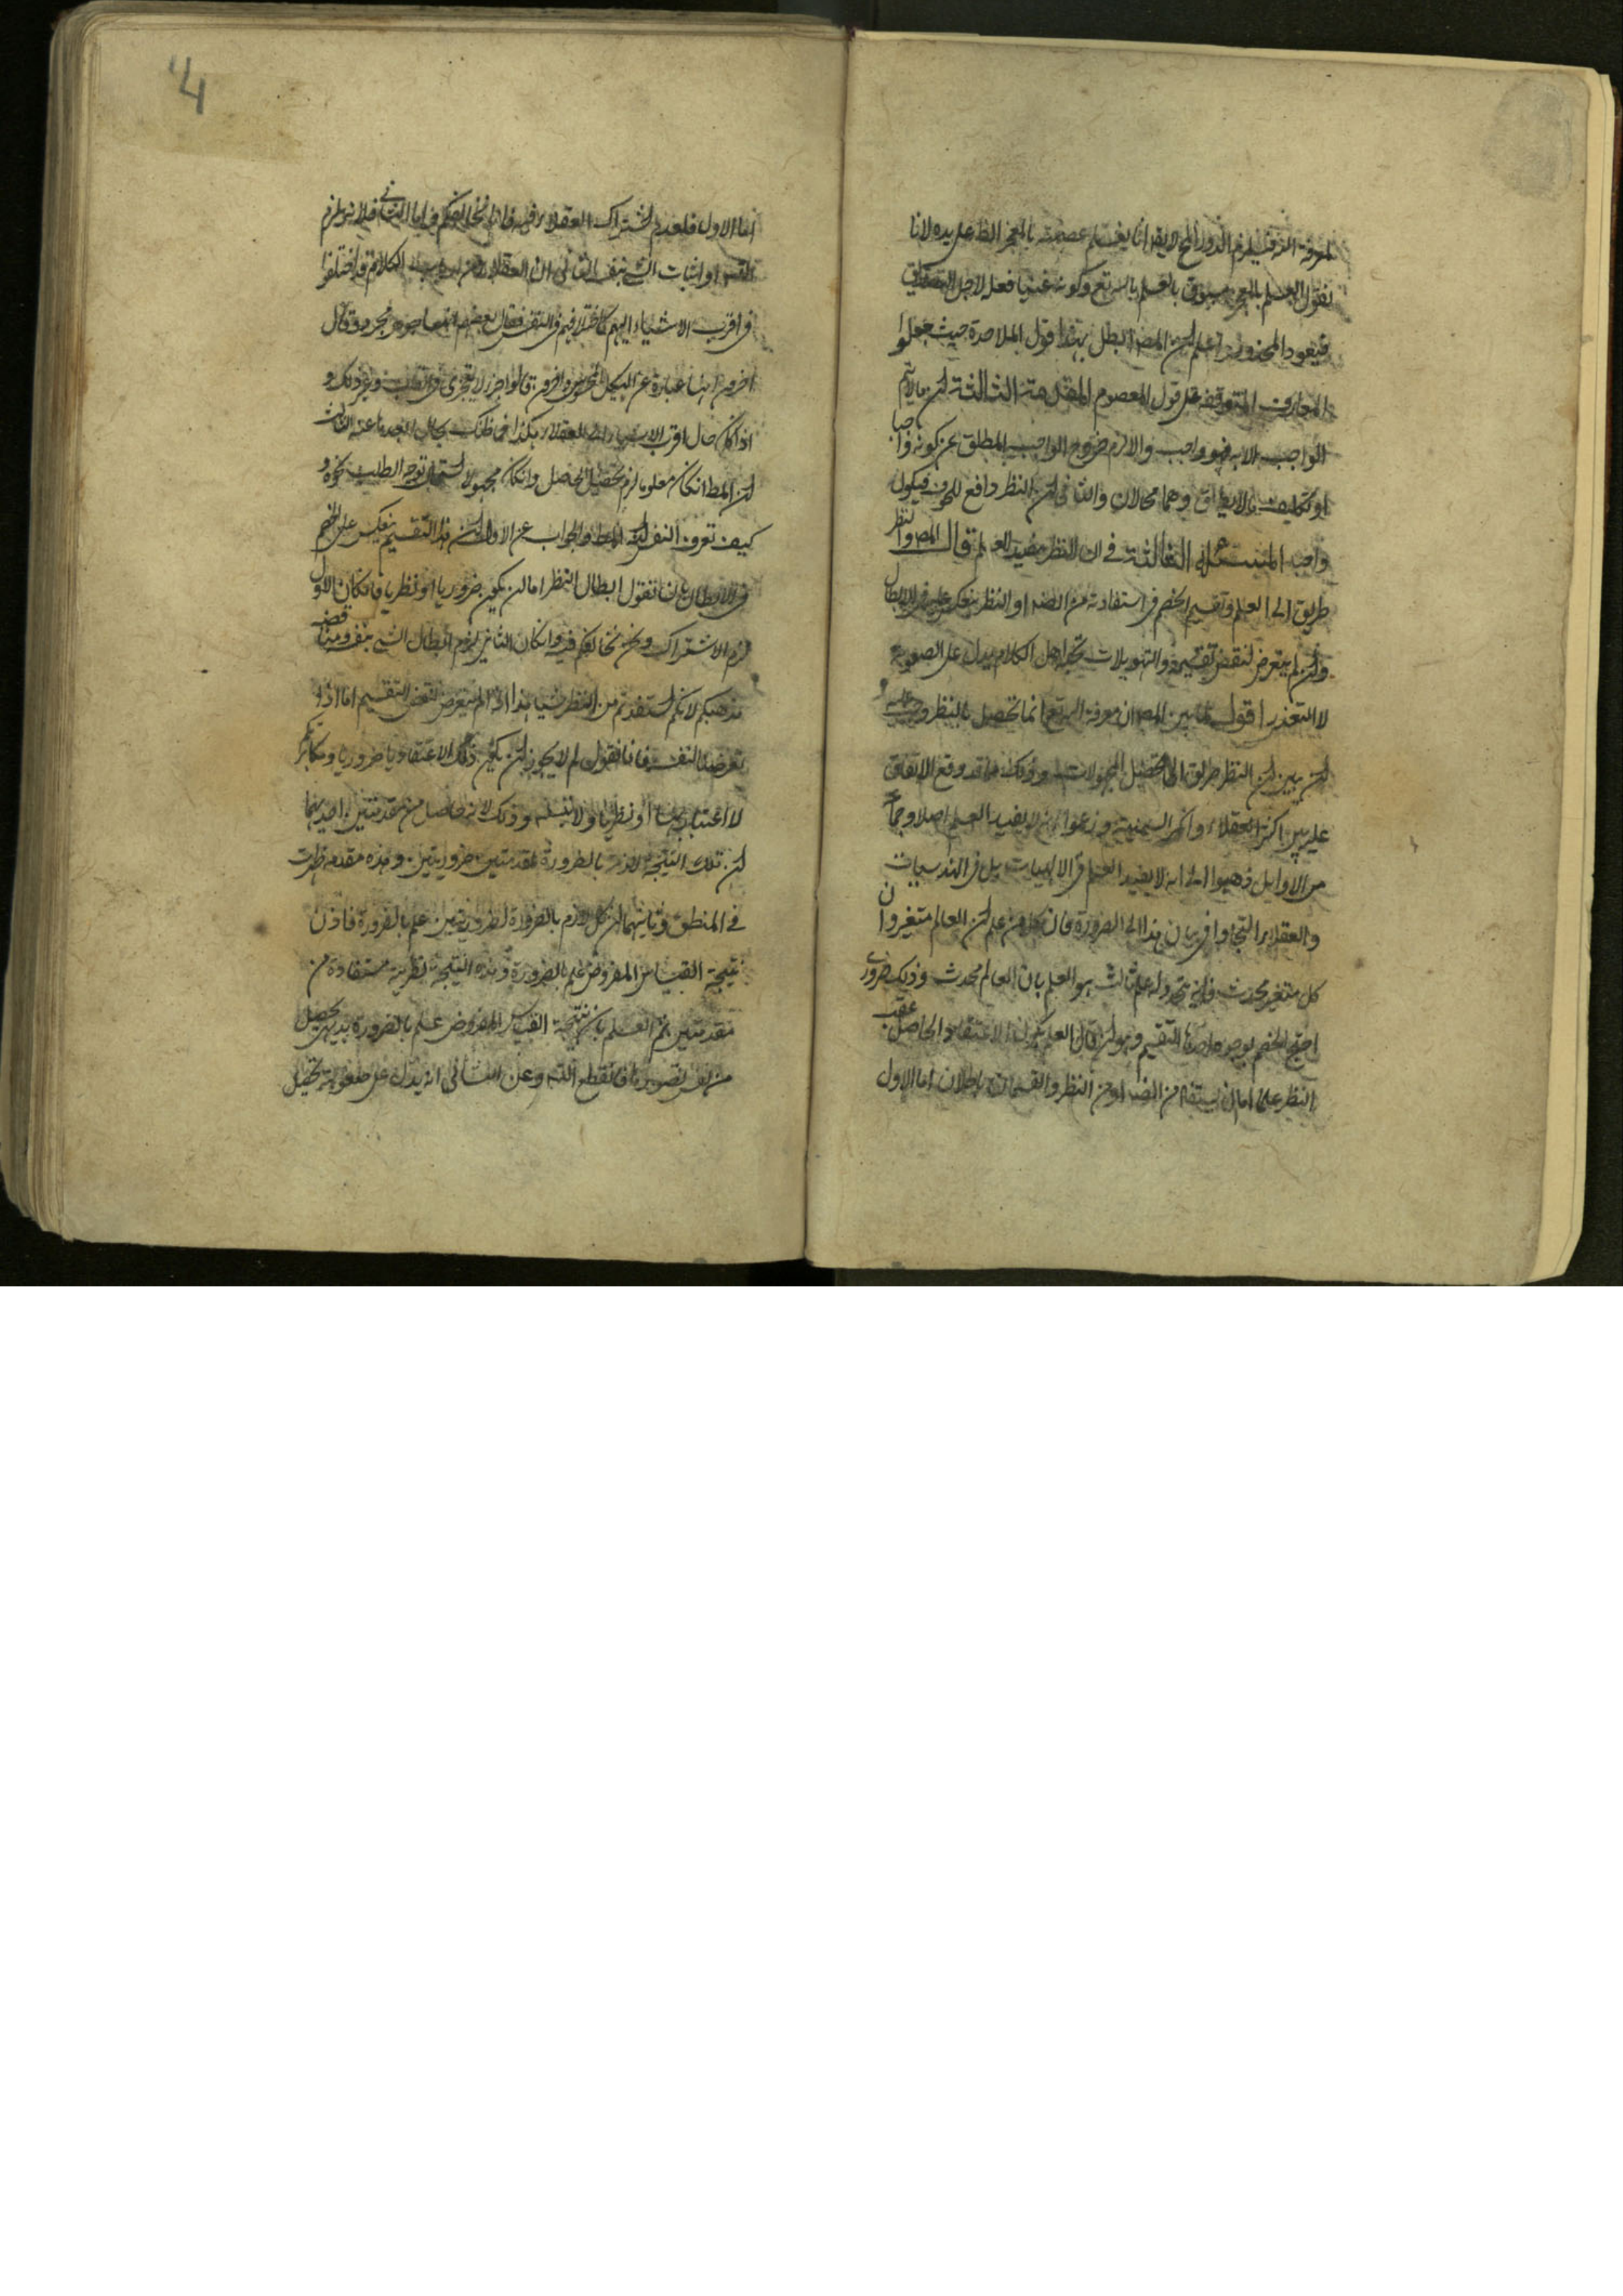 لمعرفة الله فيلزم الدور المح لا يقه انا يعلم عصمته بالمعجز الظ على يده لانا
نقول العلم بالمعجز مسبوق بالعلم بالله تع وكونه غنيا فعله لاجل التصديق
فيعود المحذور واعلم لن المصه ابطل بهذا قول الملاحدة حيث جعلوا
المعارف المتوقفة على قول المعصوم المقدمة الثالثة لن ما لا يتم
الواجب الا به فهو واجب والا لزم خروج الواجب المطلق عن كونه واجبا
او تكليف ما لا يطاق وهما محالان والثانى لن النظر دافع للخوف فيكون
واجبا المسئلة الثالثة فى ان النظر مفيد للعلم قال المصه والنظر
طريق الى العلم وتقسيم الخصم فى استفادته من الضه او النظر ينعكس عليه فى الابطال
ولن لم يتعرض لنقض تقسيمه والتهويلات تحير اهل الكلام يدل على الصعوبة
لا التعذر اقول لما بين المصه ان معرفة الله تع انما تحصل بالنظر وجب عليه
لن يبين لن النظر طريق الى تحصيل المجهولات وذلك مما قد وقع الاتفاق
عليه بين اكثر العقلاء وانكر السمنية وزعموا انه لا يفيد العلم اصلا وجماعة
من الاوايل ذهبوا الى انه لا يفيد العلم فى الالهيات بل فى الهندسيات
والعقلاء التجاوا فى بيان هذا الى الضرورة فان كل من علم لن العالم متغير وان
كل متغير محدث فانه يتجدد له علم ثالث هو العلم بان العالم محدث وذلك ضرورى
احتج الخصم بوجوه احدها التقسيم وهو لن يقال العلم بكون الاعتقاد الحاصل عقب
النظر علما اما ان يستفاد من الضه او من النظر والقسمان باطلان اما الاول
اما الاول فلعدم اشتراك العقلاء فيه فانا نخالفكم فيه اما الثانى فلانه يلزم
التس او اثبات الشى بنفسه الثانى ان العقلاء من الكلام قد اختلفوا
فى اقرب الاشياء اليهم كاختلافهم فى النفس فقال بعضهم انها جوهر مجرد وقال
اخرون انها عبارة عن الهيكل المحسوس واخرون قالوا جزء لا يتجزى فى القلب وغير ذلك و
اذا كان حال اقرب الاشياء الى العقلاء هكذا فما ظنك بحال ابعدها عنه الثالث
لن المط ان كان معلوما لزم تحصيل الحاصل وان كان مجهولا استحال توجه الطلب نحوه و
كيف تعرف النفس انه المط والجواب عن الاول لن هذا التقسيم ينعكس على الخصم
فى الابطال بان نقول ابطال النظر اما لن يكون ضروريا او نظريا فان كان الاول
لزم الاشتراك ونحن نخالفكم فيه وان كان الثانى لزم ابطال الشى بنفسه ومناقضة
مذهبكم لانكم استفدتم من النظر شيا هذا اذا لم نتعرض لنقض التقسيم اما اذا
تعرضنا للنقض فانا نقول لم لا يجوز لن يكون ذلك الاعتقاد ضروريا ومكابرتكم
لا اعتبار بها او نظريا ولا يتسلسل وذلك لانه حاصل من مقدمتين احديهما
لن تلك النتيجة لازمة بالضرورة لمقدمتين ضروريتين وهذه مقدمة ظهرت
فى المنطق وثانيتهما لن كل لازم بالضرورة لضروريتين علم بالضرورة فاذن
نتيجة القياس المفروض علم بالضرورة وهذه النتيجة نظرية مستفادة من
مقدمتين ثم العلم بان نتيجة القياس المفروض علم بالضرورة بديهى يحصل
من نفس تصورها فانقطع التس وعن الثانى انه يدل على صعوبة تحصيل